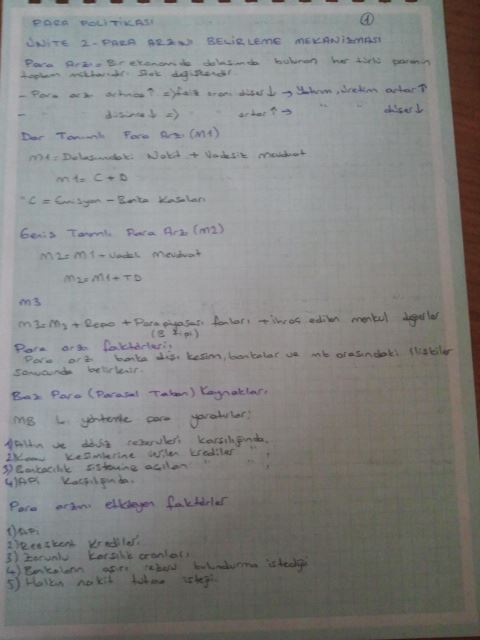 PARA POLİTİKASI
1
ÜNİTE 2 - PARA ARZINI BELİRLEME MEKANİZMASI
Para Arzı = Bir ekonomide dolaşımda bulunan her türlü paranın
toplam miktarıdır. Stok değişkendir.
- Para arzı artması ↑ => faiz oranı düşer ↓ → Yatırım, üretim artar ↑
- " düşünce ↓ => " artar ↑ → " " düşer ↓
Dar Tanımlı Para Arzı (M1)
M1 = Dolaşımdaki Nakit + Vadesiz mevduat
M1 = C + D
C = Emisyon - Banka Kasaları
Geniş Tanımlı Para Arzı (M2)
M2 = M1 + Vadeli Mevduat
M2 = M1 + TD
M3
M3 = M2 + Repo + Para piyasası fonları + ihraç edilen menkul değerler
(B tipi)
Para arzı faktörleri;
Para arzı banka dışı kesim, bankalar ve mb arasındaki ilişkiler
sonucunda belirlenir.
Baz Para (Parasal Taban) Kaynakları
MB 4 yöntemle para yaratırlar;
1) Altın ve döviz rezervleri karşılığında,
2) Kamu kesimlerine verilen krediler " ,
3) Bankacılık sistemine açılan " " ,
4) APİ karşılığında.
Para arzını etkileyen faktörler
1) APİ
2) Reeskont kredileri
3) Zorunlu karşılık oranları
4) Bankaların aşırı rezerv bulundurma isteği
5) Halkın nakit tutma isteği.